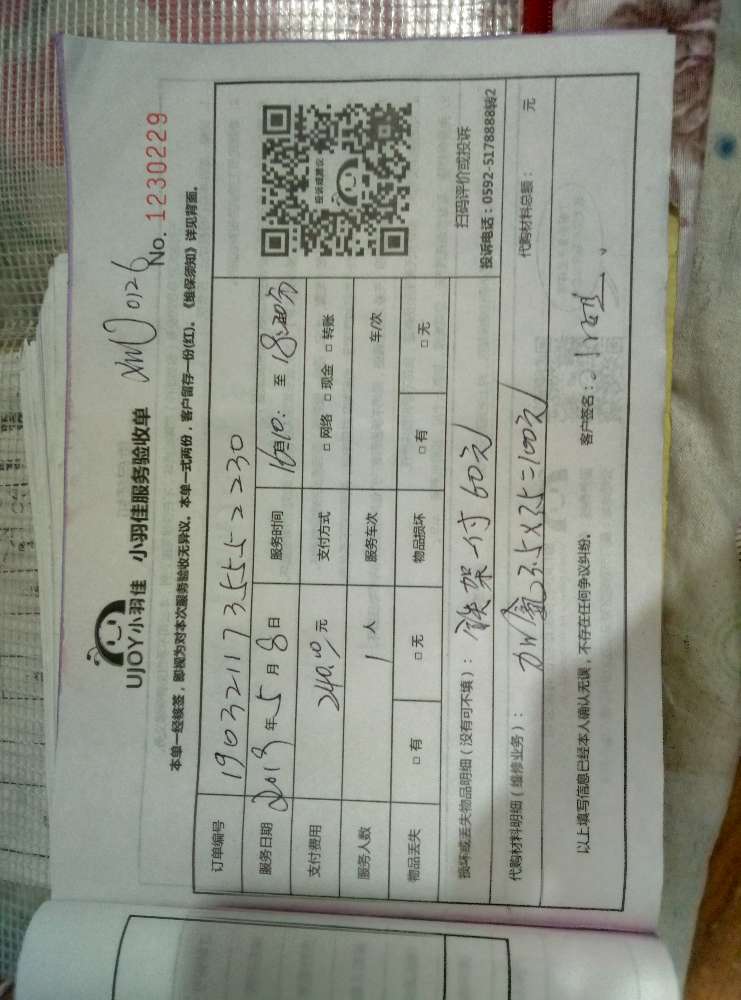 UJOY小羽佳 小羽佳服务验收单
No. 1230229
本单一经核签,即视为对本次服务验收无异议。本单一式两份,客户留存一份(红)。《维保须知》详见背面。
订单编号 1903211735552230
服务日期 2019年5月8日 服务时间 至
支付费用 240.00元 支付方式 □网络 □现金 □转账
服务人数 1人 服务车次 车/次
物品丢失 □有 □无 物品损坏 □有 □无
投诉或建议
扫码评价或投诉
投诉电话:0592-5178888转2
损坏或丢失物品明细(没有可不填): 铁架一付60元
代购材料明细(维修业务): 加氟3.5×25=100元 代购材料总额: 元
以上填写信息已经本人确认无误,不存在任何争议纠纷。 客户签名: